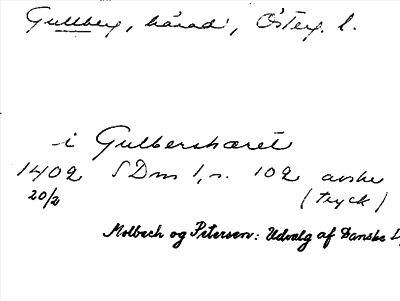 Gullberg, härad, Österg. l.
i Gulbershæret
1402 SDm 1, s. 102 avskr
20/2 (tryck)
Molbech og Petersen: Udvalg af Danske